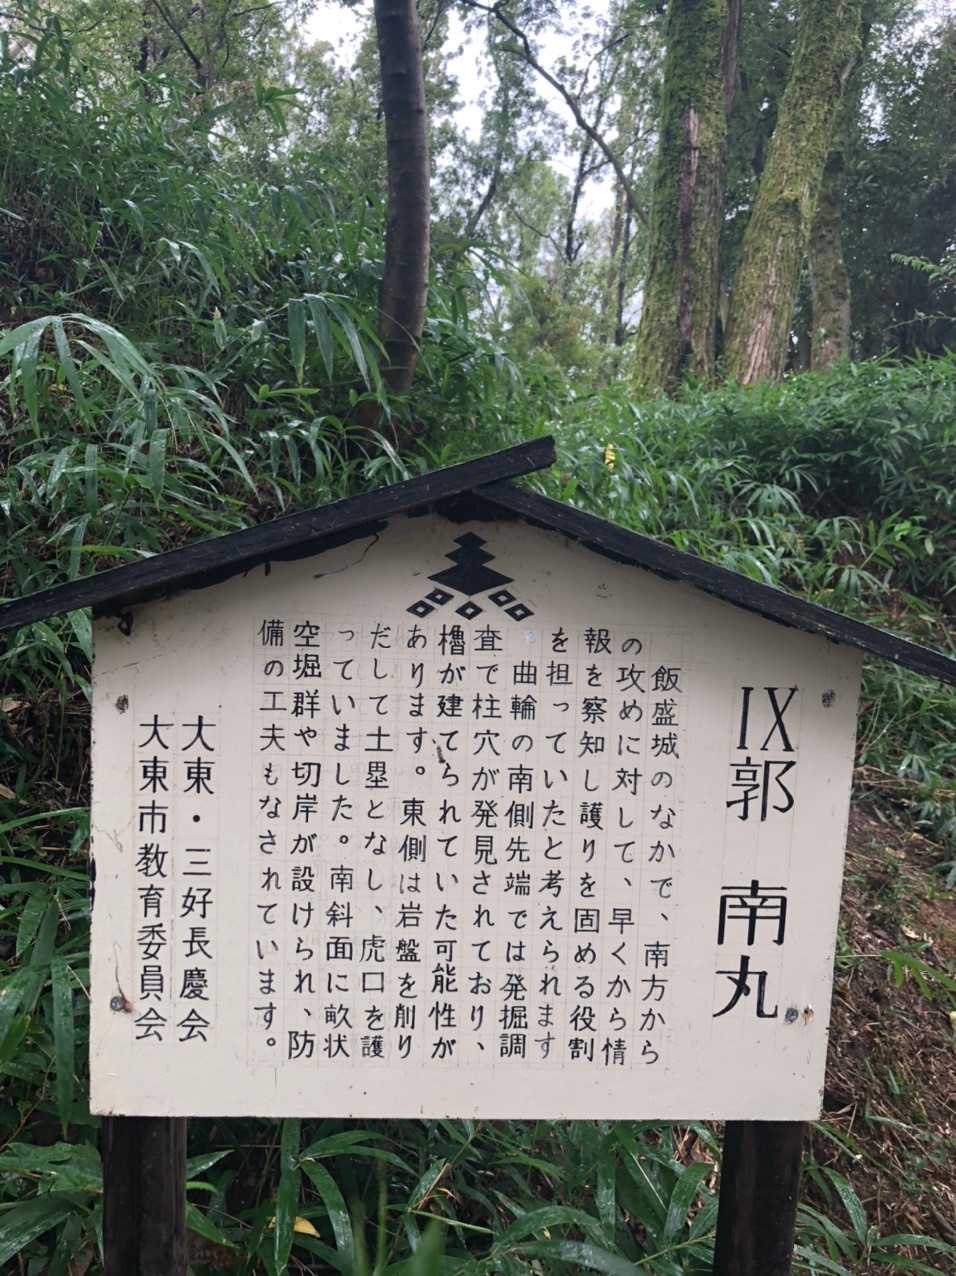 Ⅸ郭 南丸
飯盛城のなかで、南方から
の攻めに対して、早くから情
報を察知し護りを固める役割
を担っていたと考えられます
曲輪の南側先端では発掘調
査で柱穴が発見されており、
櫓が建てられていた可能性が
あります。東側は岩盤を削り
だして土塁となし、虎口を護
っていました。南斜面に畝状
空堀群や切岸が設けられ、防
備の工夫もなされています。
大東・三好長慶会
大東市教育委員会